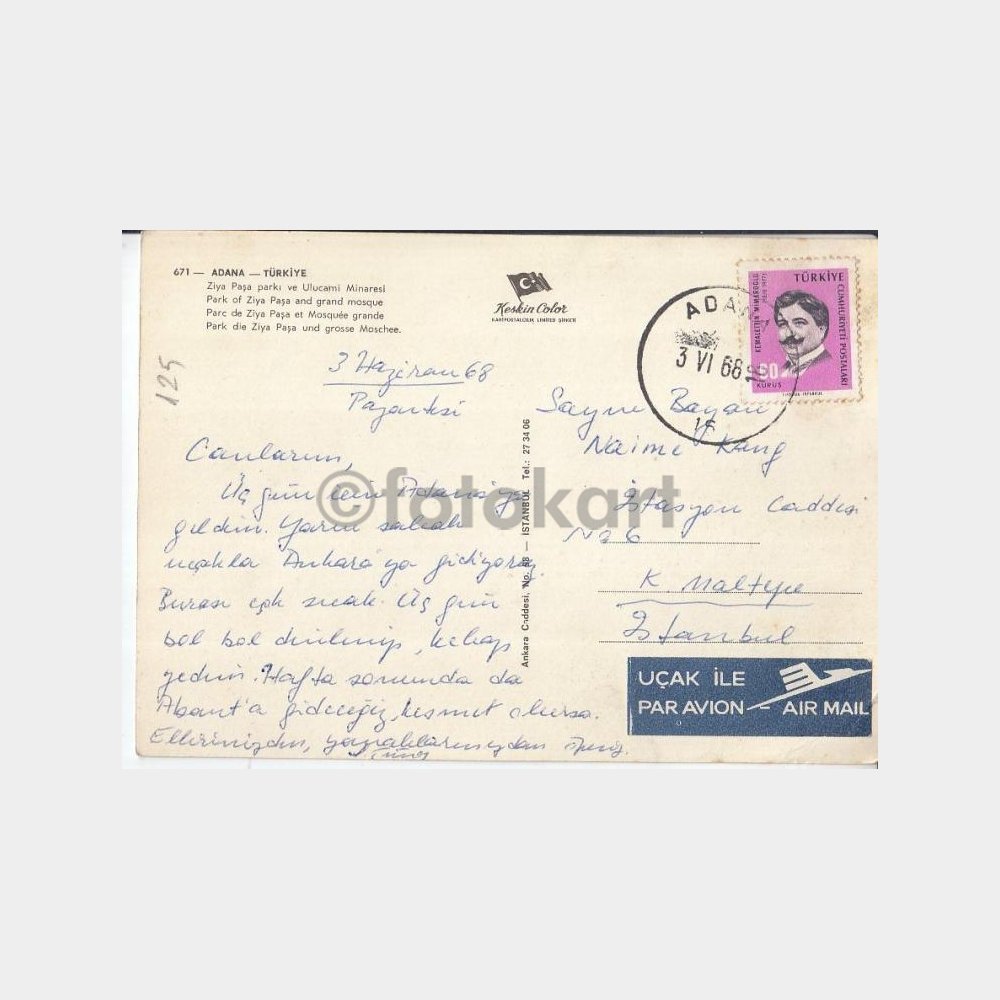 671 — ADANA — TÜRKİYE
Ziya Paşa parkı ve Ulucami Minaresi
Park of Ziya Paşa and grand mosque
Parc de Ziya Paşa et Mosquée grande
Park die Ziya Paşa und grosse Moschee.
Keskin Color
KARTPOSTALCILIK LİMİTED ŞİRKETİ
Ankara Caddesi, No. 98 — İSTANBUL Tel.: 27 34 06
125
3 Haziran 68
Pazartesi
Canlarım,
Üç gün için Adana'ya
geldim. Yarın sabah
uçakla Ankara'ya gidiyoruz.
Burası çok sıcak. Üç gün
bol bol dinlenip, kebap
yedim. Hafta sonunda da
Abant'a gideceğiz, kısmet olursa.
Ellerinizden, yanaklarınızdan öperiz.
ADANA
3 VI 68
TÜRKİYE
CUMHURİYETİ POSTALARI
KEMALETTİN MİMAROĞLU
60
KURUŞ
Sayın Bayan
Naime Kang
İstasyon Caddesi
No 6
K. Maltepe
İstanbul
UÇAK İLE
PAR AVION — AIR MAIL
©fotokart